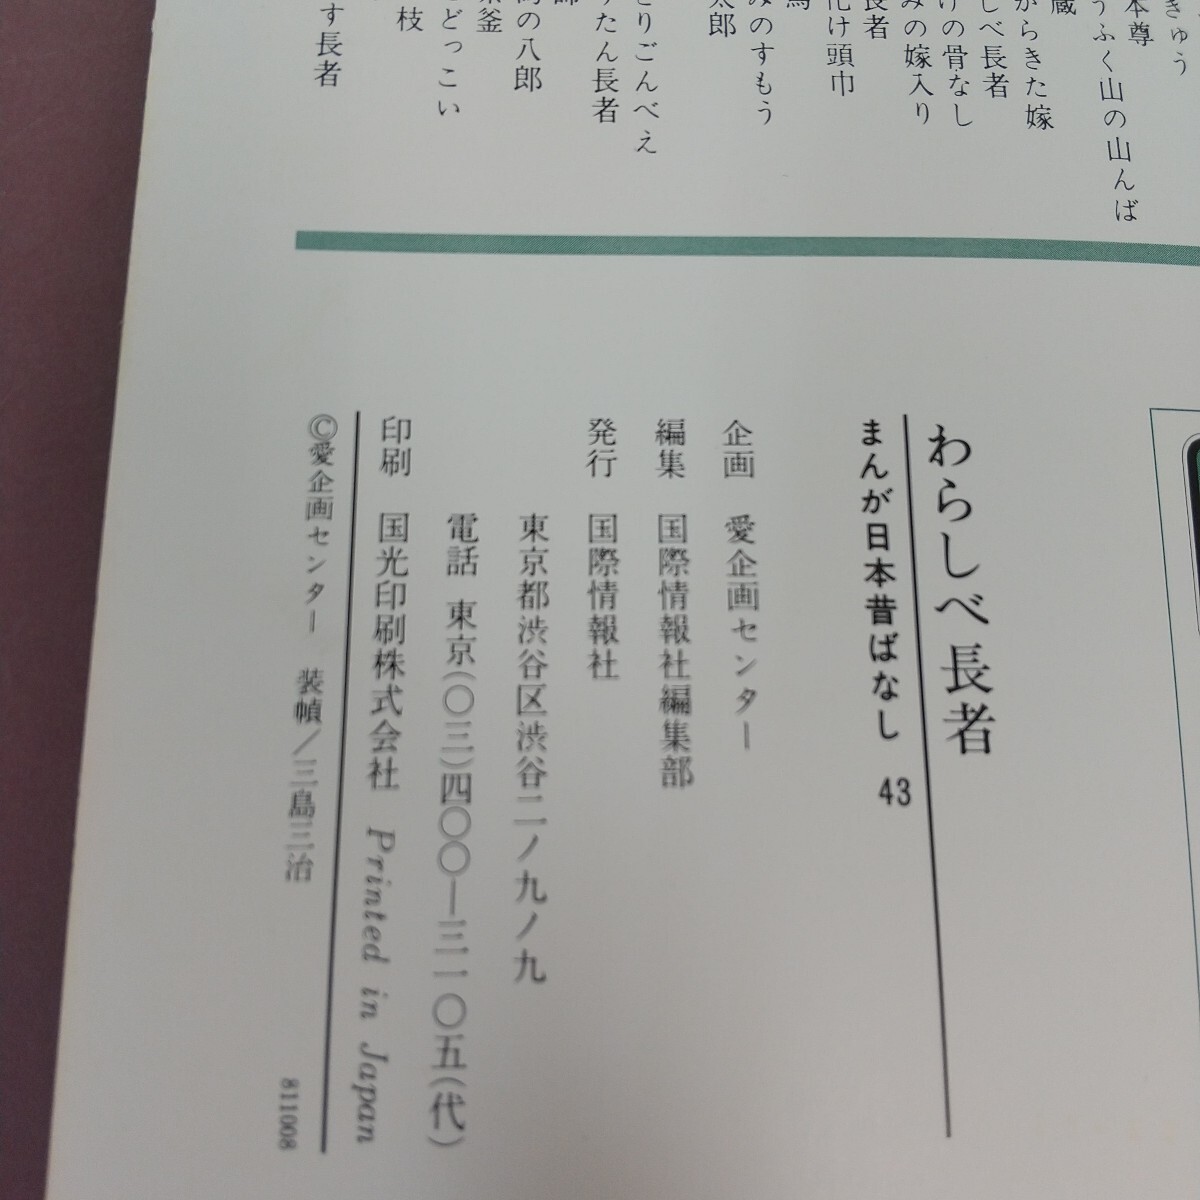 きゅう
本尊
うふく山の山んば
蔵
がらきた嫁
しべ長者
けの骨なし
みの嫁入り
長者
化け頭巾
馬
みのすもう
太郎
とりごんべえ
りたん長者
の八郎
釜
どっこい
枝
す長者
わらしべ長者
まんが日本昔ばなし 43
企画 愛企画センター
編集 国際情報社編集部
発行 国際情報社
東京都渋谷区渋谷二ノ九ノ九
電話 東京(〇三)四〇〇―三一〇五(代)
印刷 国光印刷株式会社 Printed in Japan
©愛企画センター 装幀／三島三治
811008